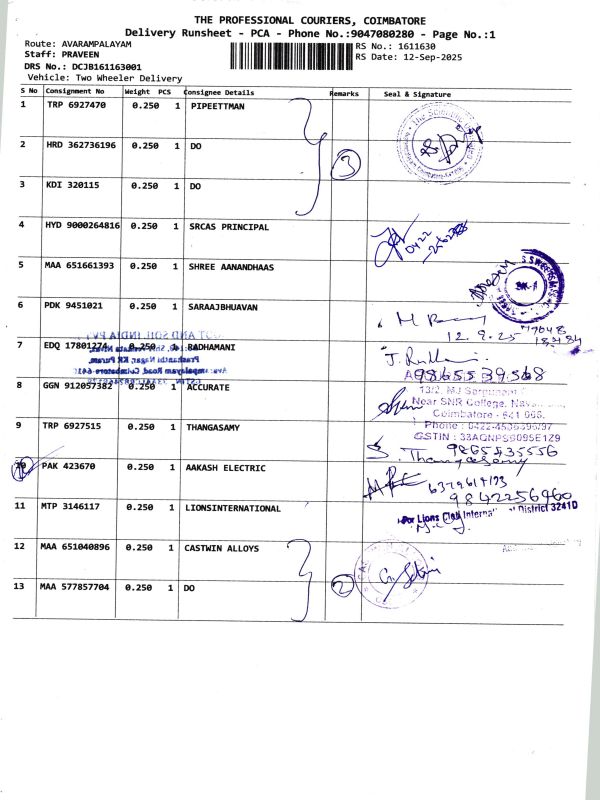 THE PROFESSIONAL COURIERS, COIMBATORE
Delivery Runsheet - PCA - Phone No.:9047080280 - Page No.:1
Route: AVARAMPALAYAM
RS No.: 1611630
Staff: PRAVEEN
RS Date: 12-Sep-2025
DRS No.: DCJB161163001
Vehicle: Two Wheeler Delivery
S No Consignment No Weight PCS Consignee Details Remarks Seal & Signature
1 TRP 6927470 0.250 1 PIPEETTMAN
2 HRD 362736196 0.250 1 DO 3
3 KDI 320115 0.250 1 DO
4 HYD 9000264816 0.250 1 SRCAS PRINCIPAL
0422
5 MAA 651661393 0.250 1 SHREE AANANDHAAS
6 PDK 9451021 0.250 1 SARAAJBHUAVAN
12.9.25
7 EDQ 17801274 0.250 1 RADHAMANI
9865539568
8 GGN 912057382 0.250 1 ACCURATE
Near SNR College,
Coimbatore - 641 006.
Phone : 0422-
GSTIN :
9 TRP 6927515 0.250 1 THANGASAMY
9865435556
S. Thangasamy
10 PAK 423670 0.250 1 AAKASH ELECTRIC
9842256960
11 MTP 3146117 0.250 1 LIONSINTERNATIONAL
For Lions Club International District 3241D
12 MAA 651040896 0.250 1 CASTWIN ALLOYS
13 MAA 577857704 0.250 1 DO 2